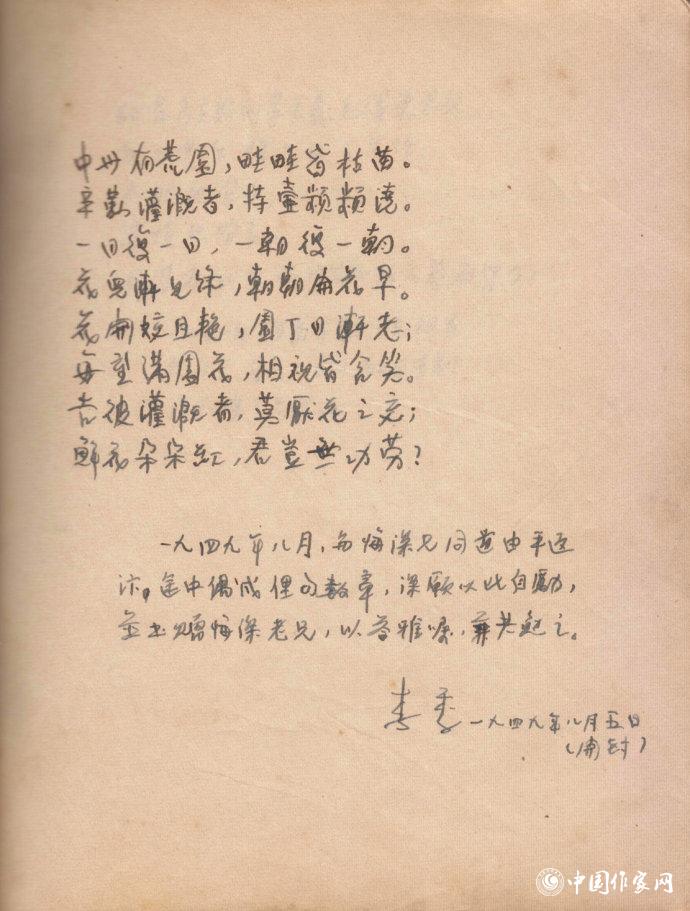 中州有荒園，畦畦皆枯苗。
辛勤灌溉者，持壺頻頻澆。
一日復一日，一朝復一朝。
花兒漸見綠，朝朝開花早。
花開姣且艷，園丁日漸老；
每望滿園花，相視皆含笑。
告彼灌溉者，莫厭花之完；
鮮花朵朵紅，君豈無功勞？
一九四九年八月，與悔深兄同道由平返
汴，途中偶成俚句數章，深願以此自勵，
並書贈悔深老兄，以答雅囑，兼共勉之。
李季 一九四九年八月五日
（開封）
中国作家网